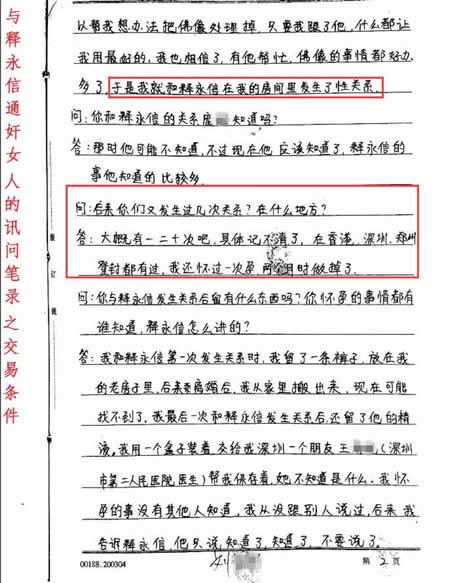 与释永信通奸女人的讯问笔录之交易条件
以帮我想办法把佛像处理掉,只要我跟了他,什么都让
我用最好的,我也相信了,有他帮忙,佛像的事情都好办
多了,于是我就和释永信在我的房间里发生了性关系.
问:你和释永信的关系庞 知道吗?
答:那时他可能不知道,不过现在他应该知道了,释永信的
事他知道的比较多.
问:后来你们又发生过几次关系?在什么地方?
答:大概有一二十次吧,具体记不清了,在香港,深圳,郑州
登封都有过,我还怀过一次孕,两个月时做掉了.
问:你与释永信发生关系后留有什么东西吗?你怀孕的事情都有
谁知道,释永信怎么讲的?
答:我和释永信第一次发生关系时,我留了一条裤子,放在我
的老房子里,后来 离婚后,我从家里搬出来,现在可能
找不到了,我最后一次和释永信发生关系后,还留了他的精
液,我用一个盒子装着,交给我深圳一个朋友王 (深圳
市第二人民医院,医生)帮我保存着,她不知道是什么.我怀
孕的事没有其他人知道,我从没跟别人说过,后来我
告诉释永信,他只说,知道了,知道了,不要说了.
订
线
00188.200304
第2页